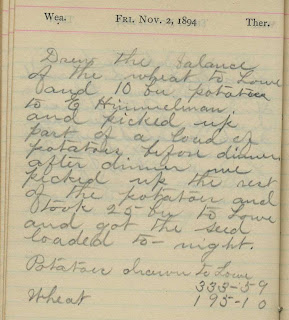 Wea. FRI. NOV. 2, 1894 Ther.
Drew the balance
of the wheat to Lowe
and 10 bu potatoes
to E Himmelman
and picked up
part of a load of
potatoes before dinner
after dinner we
picked up the rest
of the potatoes and
took 25 bu to Lowe
and got the seed
loaded to-night.
Potatoes drawn to Lowe
333-59
Wheat 195-10